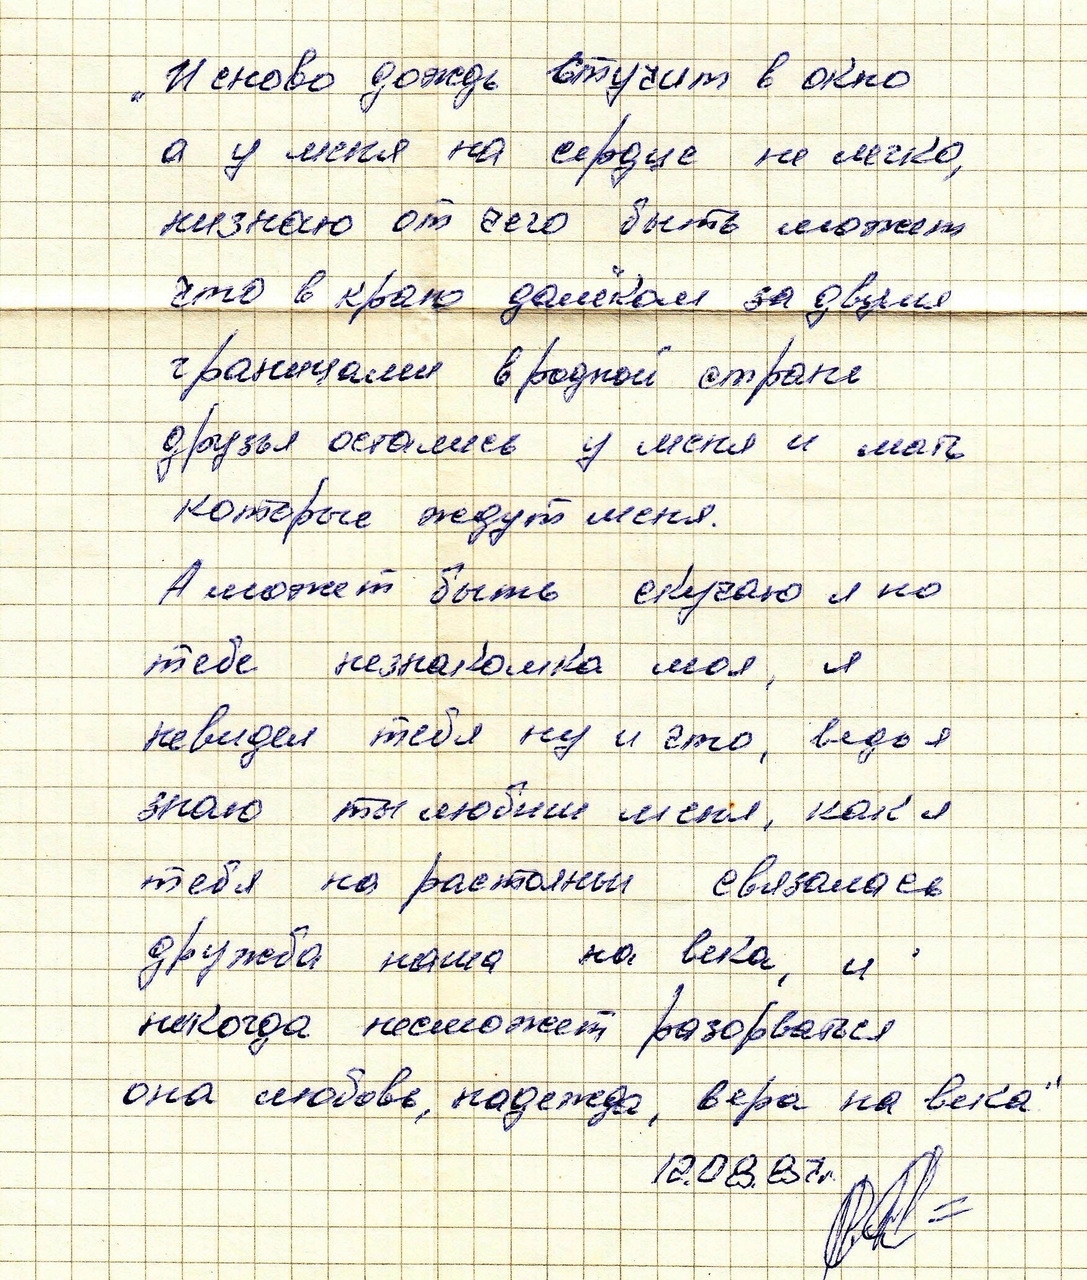 „И сново дождь стучит в окно
а у меня на сердце не легко,
низнаю от чего быть может
что в краю далёком за двумя
границами в родной стране
друзья остались у меня и мать
которые ждут меня.
А может быть скучаю я по
тебе незнакомка моя, я
невидел тебя ну и что, ведь я
знаю ты любиш меня, как я
тебя на растоянии связалась
дружба наша на века, и
никогда несможет разорваться
она любовь, надежда, вера на века"
12.08.87г.